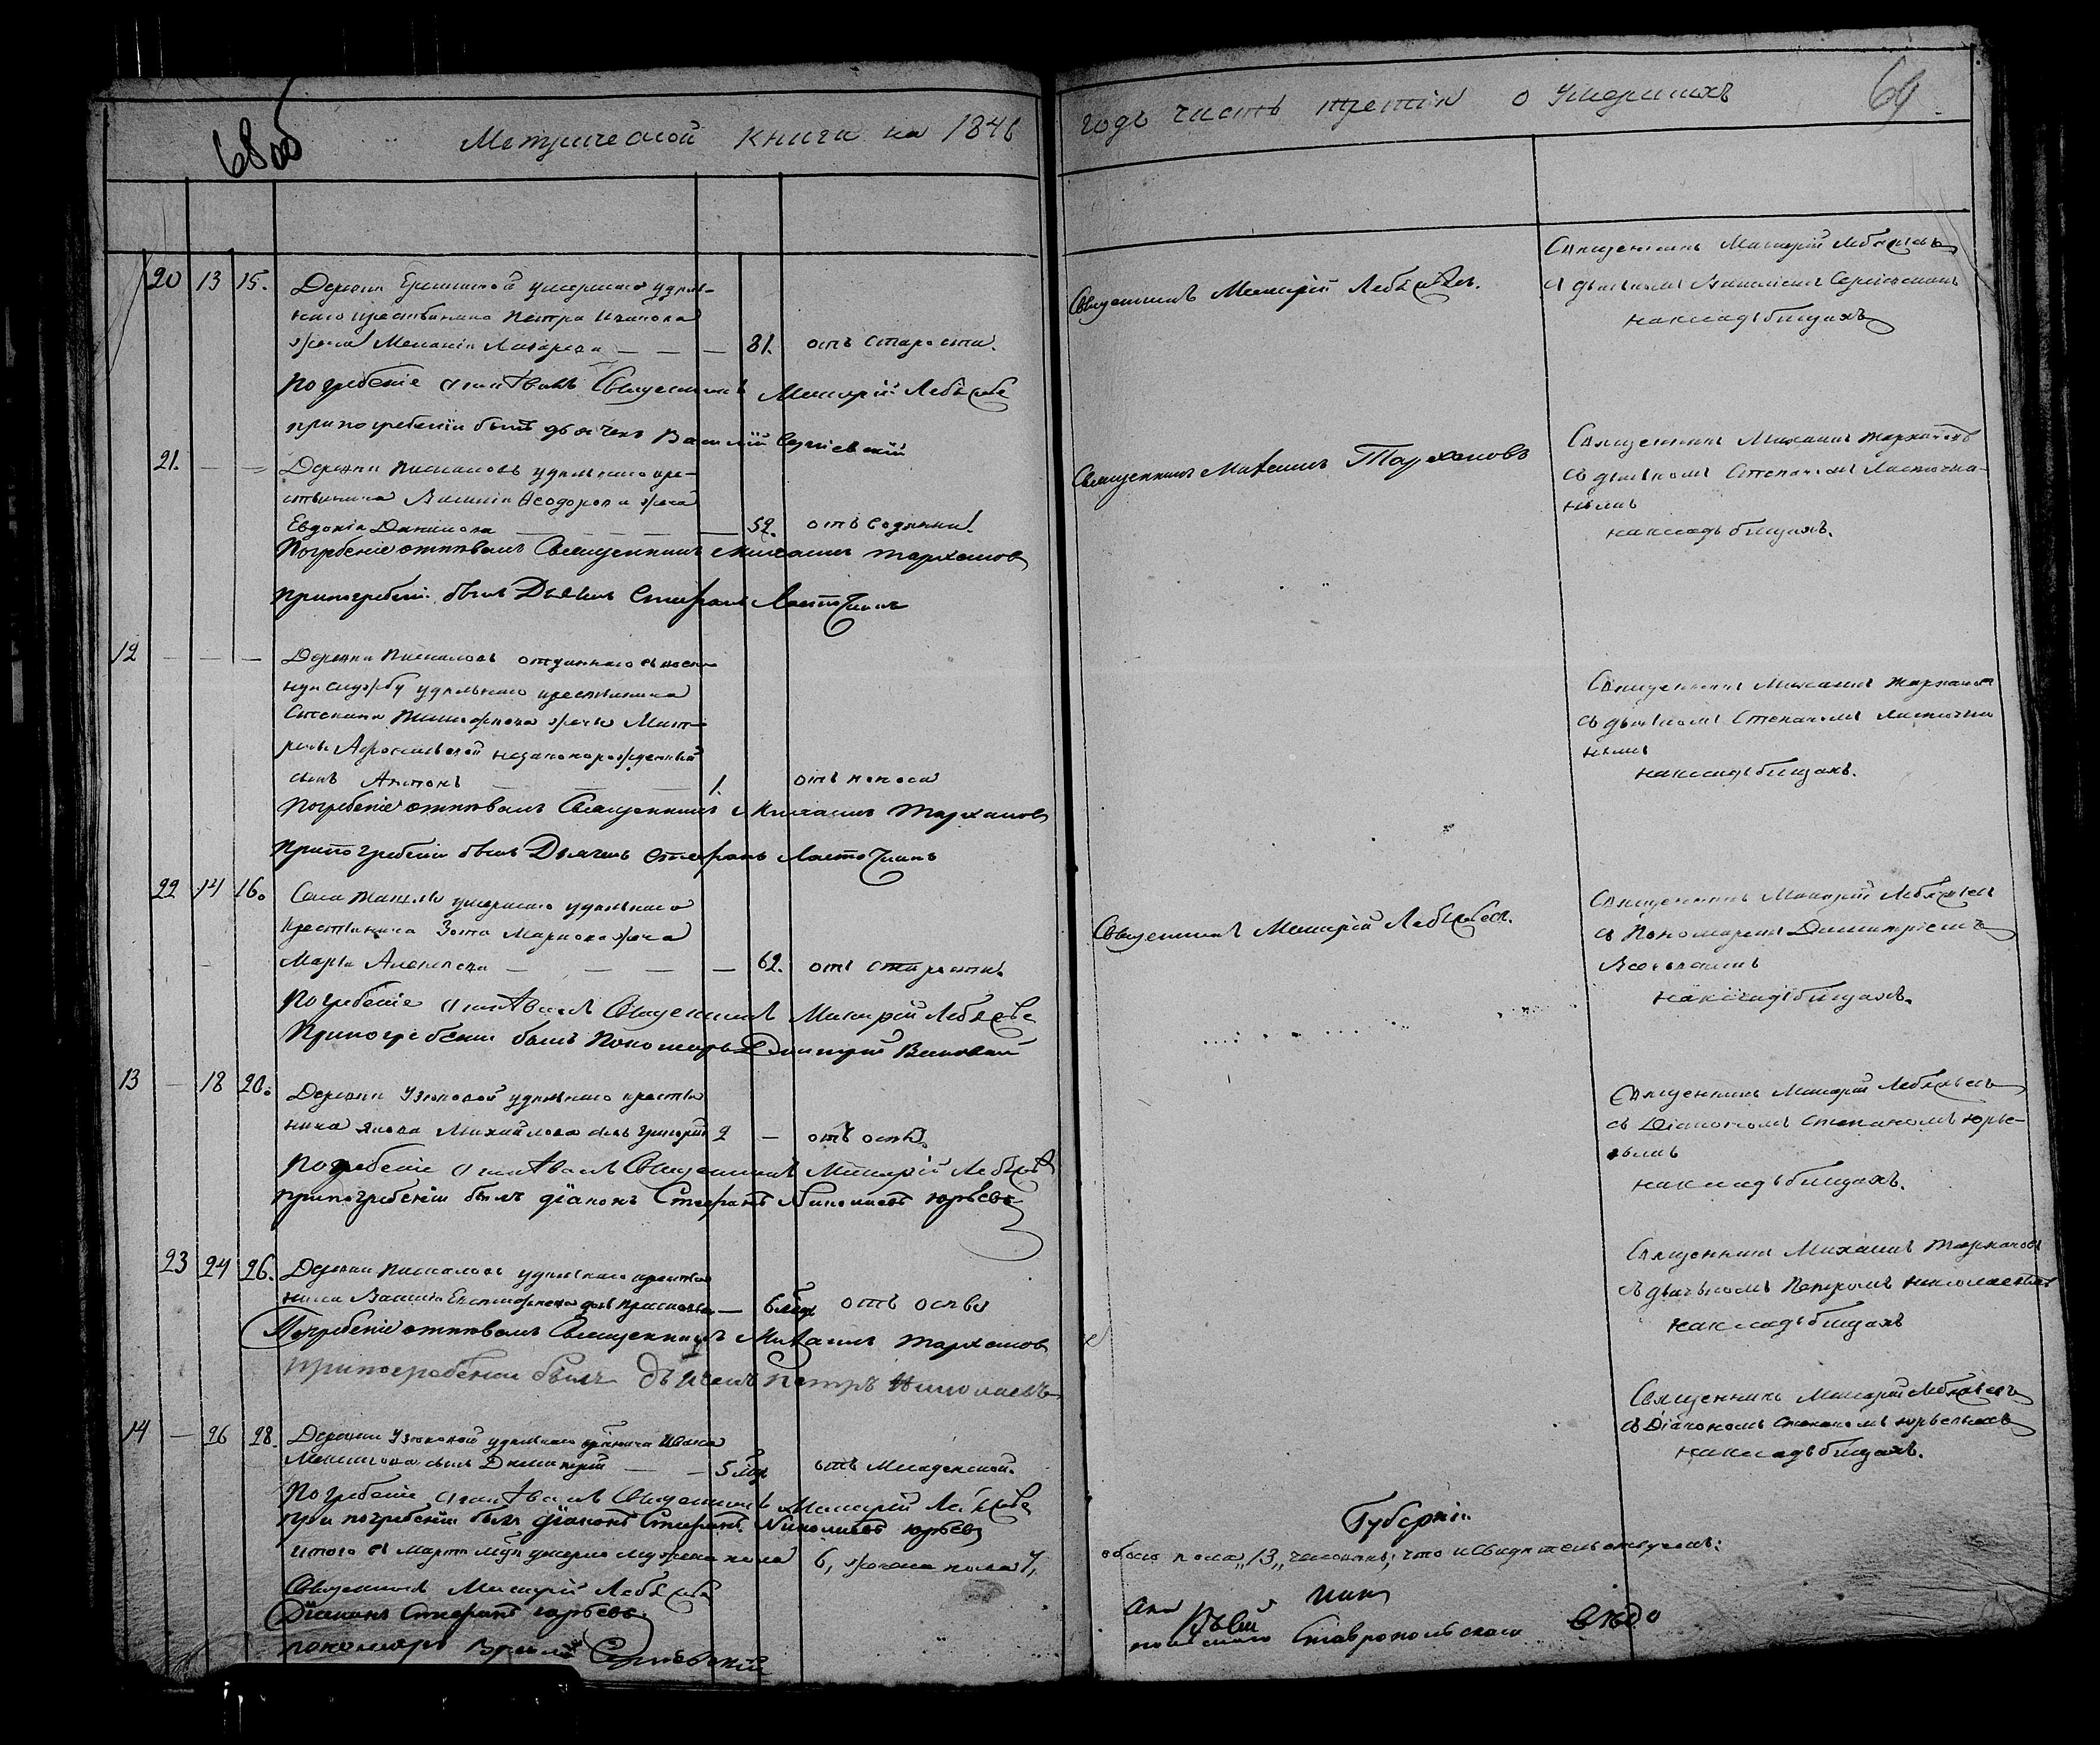 68об
Метрической книги на 1846
годъ часть третія о умершихъ
69.
20 13 15. Деревни умершаго удѣль-
наго крестьянина Петра Иванова
жена Меланія Лазарева — — — 81. отъ старости.
Погребеніе отпѣвалъ Священникъ Макарій Лебяжьев
при погребеніи былъ дьячекъ Василій Сергіевскій
Священникъ Макарій Лебяжьев.
Священникъ Макарій Лебяжьевъ
съ дьячкомъ Василіемъ Сергіевскимъ
на кладбищахъ
21. — — Деревни Пискаловъ удѣльнаго кре-
стьянина Василія Ѳеодорова жена
Евдокія Данилова — — — — 52. отъ водянки.
Погребеніе отпѣвалъ Священникъ Михаилъ Тархановъ
При погребеніи былъ Дьячекъ Стефанъ Ласточкинъ
Священникъ Михаилъ Тархановъ
Священникъ Михаилъ Тархановъ
съ дьячкомъ Степаномъ Ласточки-
нымъ
на кладбищахъ.
12 — — — Деревни Пискаловъ отданнаго въ воен-
ную службу удѣльнаго крестьянина
Степана жены Мат-
рены незаконорожденный
сынъ Антонъ — — — 1. отъ поноса
Погребеніе отпѣвалъ Священникъ Михаилъ Тархановъ
При погребеніи былъ Дьячекъ Стефанъ Ласточкинъ
Священникъ Михаилъ Тархановъ
съ дьячкомъ Степаномъ Ласточки
нымъ
на кладбищахъ.
22 14 16. Села умершаго удѣльнаго
крестьянина Зота Маркова жена
Марья Алексѣева — — — — 62. отъ старости.
Погребеніе отпѣвалъ Священникъ Макарій Лебяжьев
При погребеніи былъ Пономарь Димитрій
Священникъ Макарій Лебяжьев.
Священникъ Макарій Лебяжьевъ
съ Пономаремъ Димитріемъ
на кладбищахъ.
13 — 18 20. Деревни Узюковой удѣльнаго крестья
нина Якова Михайлова сынъ Григорій 2 — отъ оспы.
Погребеніе отпѣвалъ Священникъ Макарій Лебяжьев
при погребеніи былъ діаконъ Стефанъ Николаевъ Юрьевъ
Священникъ Макарій Лебяжьевъ
съ Діакономъ Степаномъ Юрье-
вымъ
на кладбищахъ.
23 24 26. Деревни Пискаловъ удѣльнаго крестья
нина Василія дочь — 6 мѣс. отъ оспы
Погребеніе отпѣвалъ Священникъ Михаилъ Тархановъ
При погребеніи былъ дьячекъ Петръ Николаевъ
Священникъ Михаилъ Тархановъ
съ дьячкомъ Петромъ Николаевымъ
на кладбищахъ
14 — 26 28. Деревни Узюковой удѣльнаго Ивана
сынъ Димитрій — — 5 мѣс. отъ младенской.
Погребеніе отпѣвалъ Священникъ Макарій Лебяжьев
При погребеніи былъ діаконъ Стефанъ Николаевъ Юрьевъ
Священникъ Макарій Лебяжьевъ
съ Діакономъ Степаномъ Юрьевымъ
на кладбищахъ.
Итого въ Мартѣ умерло мужеска пола 6, женска пола 7,
обоего пола „13„ человѣкъ; что и свидѣтельствуемъ:
Губерніи
Священникъ Макарій Лебяжьев
Діаконъ Стефанъ Юрьевъ
пономарь Василій Сергіевскій
Ставропольскаго